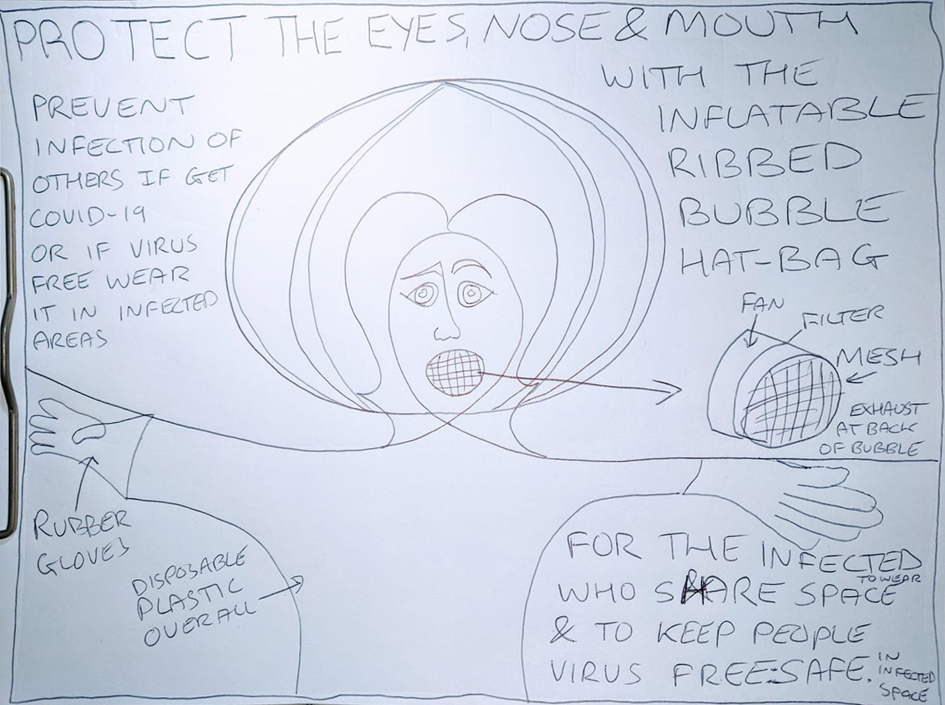 PROTECT THE EYES, NOSE & MOUTH
WITH THE
INFLATABLE
RIBBED
BUBBLE
HAT-BAG
PREVENT
INFECTION OF
OTHERS IF GET
COVID-19
OR IF VIRUS
FREE WEAR
IT IN INFECTED
AREAS
FAN
FILTER
MESH
EXHAUST
AT BACK
OF BUBBLE
RUBBER
GLOVES
DISPOSABLE
PLASTIC
OVERALL
FOR THE INFECTED
TO WEAR
WHO SHARE SPACE
& TO KEEP PEOPLE
VIRUS FREE:SAFE.
IN
INFECTED
SPACE